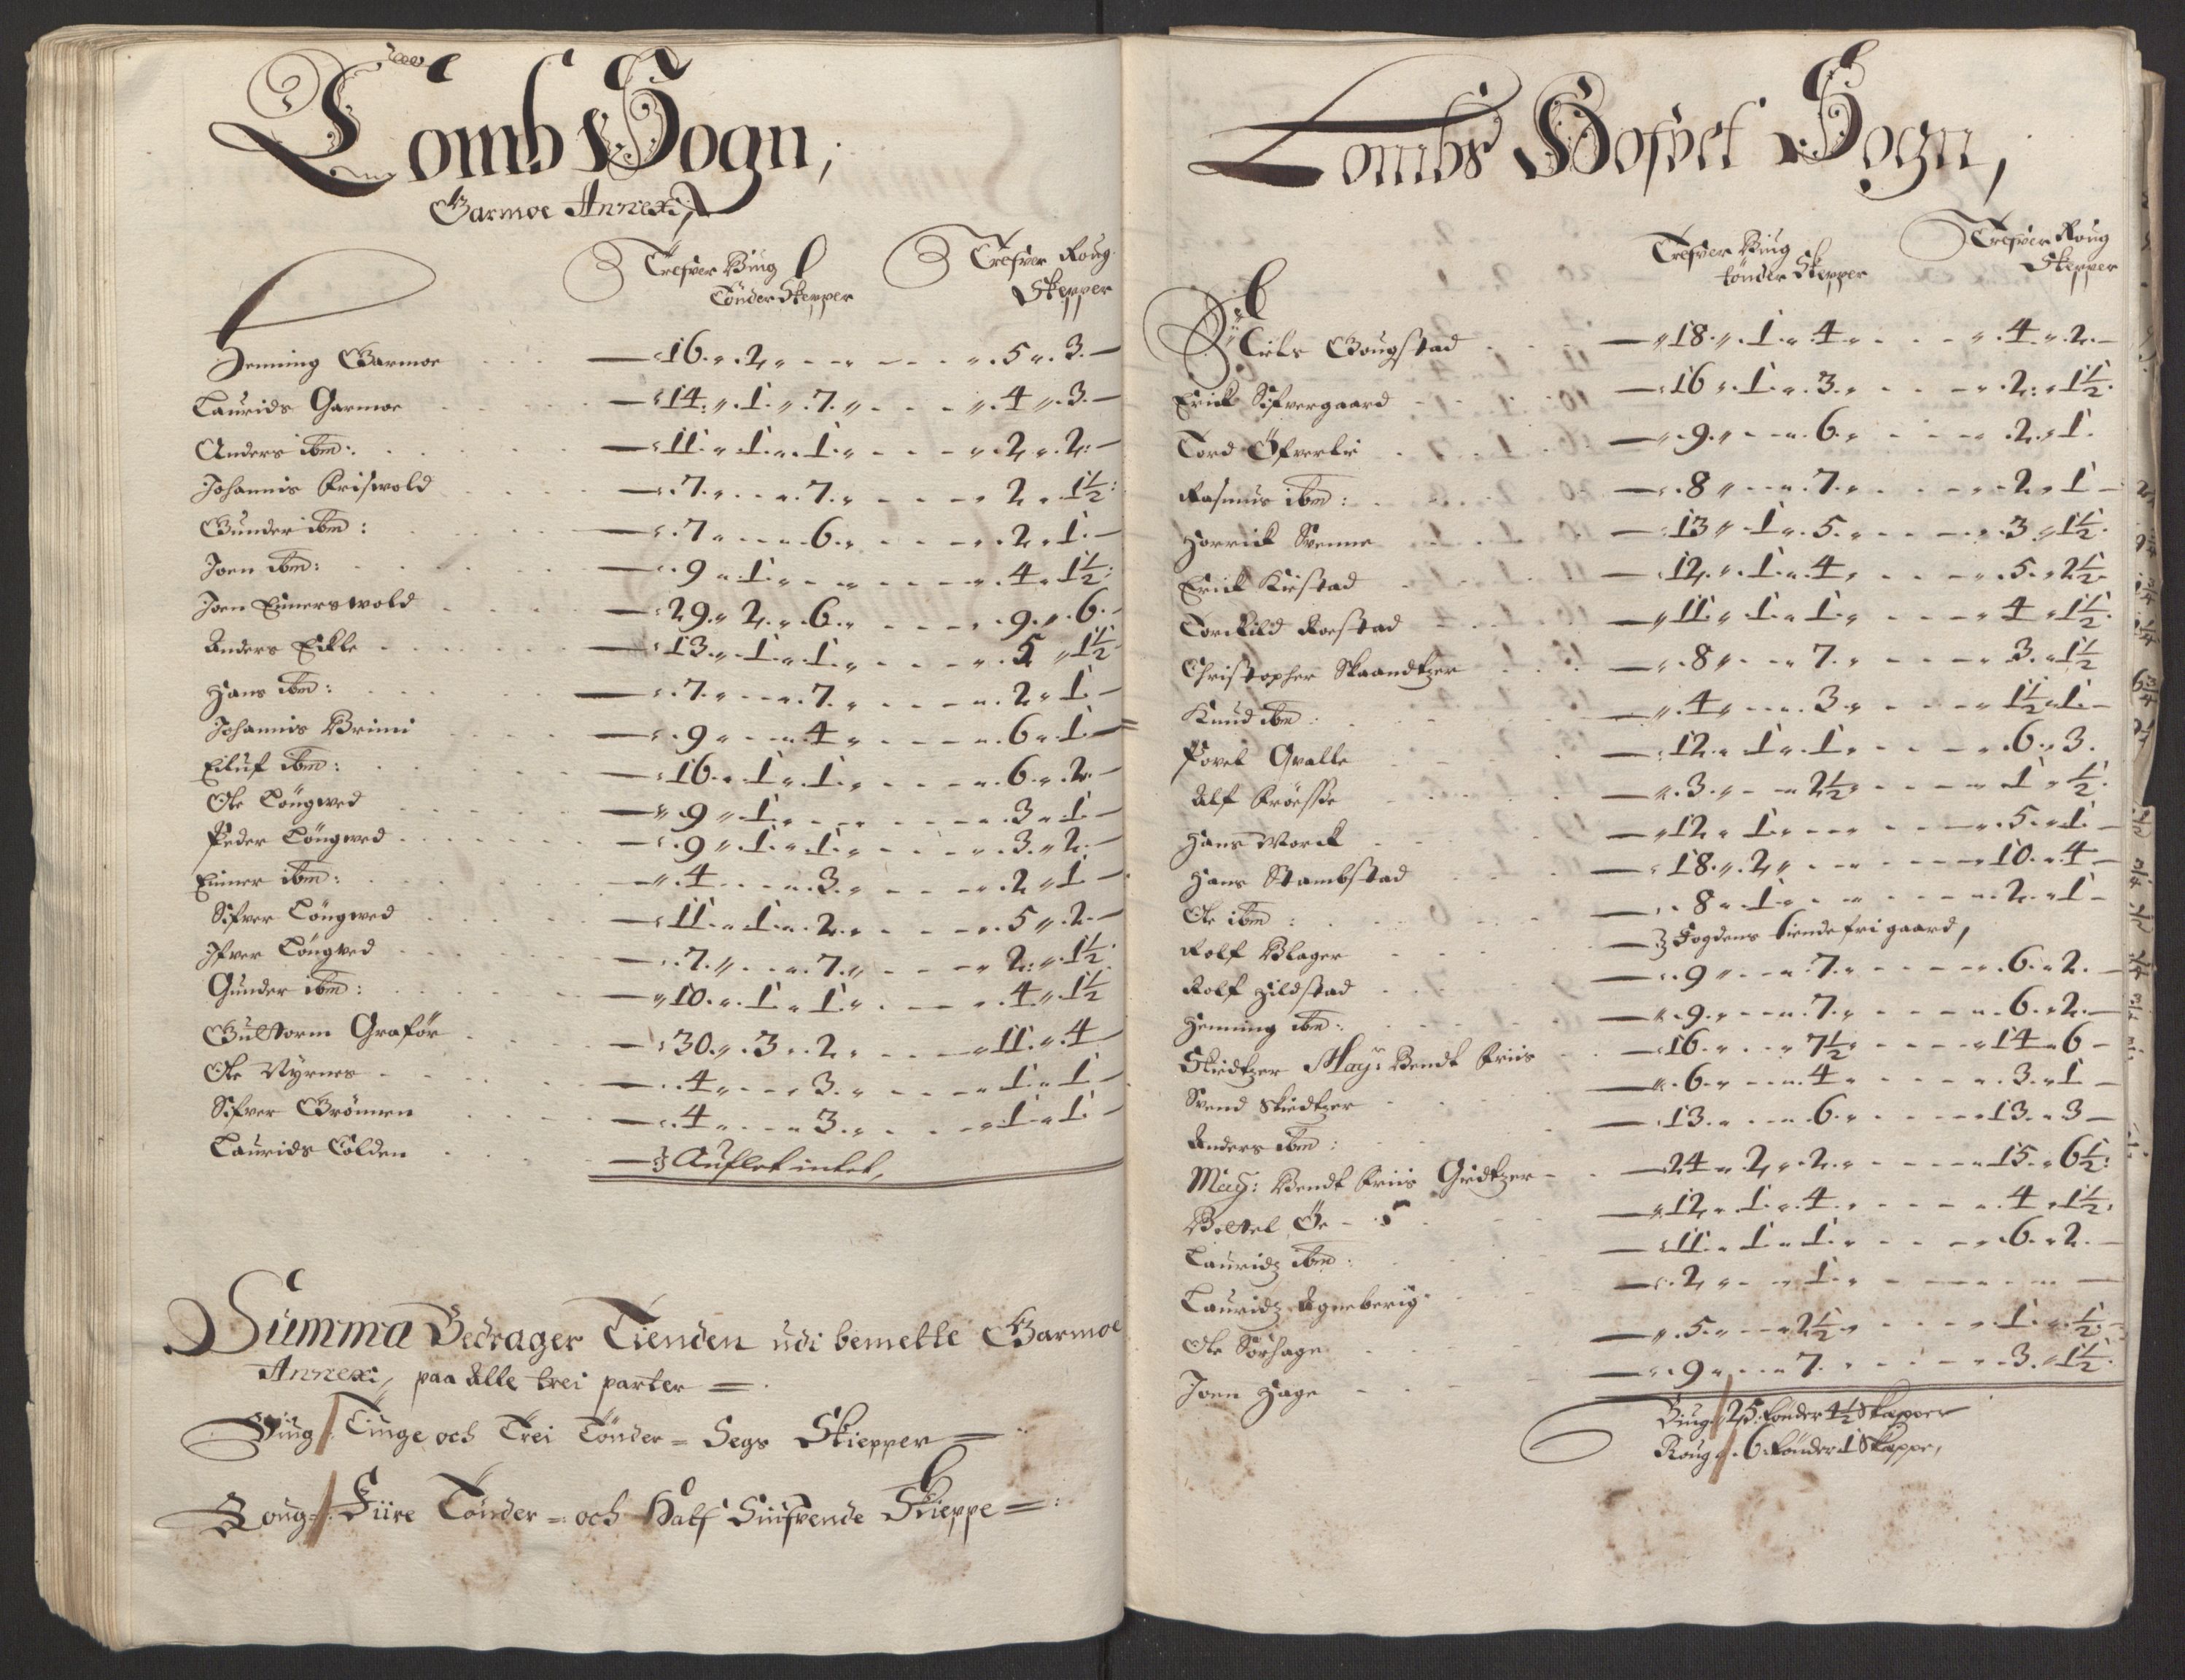 Lomb Sogn,
Garmoe Annexi,
Trefver Biug Tønder Skepper
Trefver Roug Skepper
Henning Garmoe 16 2 5 3
Laurids Garmoe 14 1 7 4 3
Anders ibm: 11 1 1 2 2
Johannis Friswold 7 7 2 1½
Gunder ibm: 7 6 2 1
Joen ibm: 9 1 4 1½
Joen Einerswold 29 2 6 9 6
Anders Eckle 13 1 1 5 1½
Hans ibm: 7 7 2 1
Johannis Brimi 9 4 6 1
Eiluf ibm: 16 1 1 6 2
Ole Löngwed 9 1 3 1
Peder Löngwed 9 1 1 3 2
Einner ibm: 4 3 2 1
Sifver Löngwed 11 1 2 5 2
Ifver Löngwed 7 7 2 1½
Gunder ibm: 10 1 1 4 1½
Gulttorm Grafför 30 3 2 11 4
Ole Nyrnes 4 3 1 1
Sifver Grönnen 4 3 1 1
Laurids Colden Auflet intet,
Summa Bedrager Tienden udi bemelte Garmoe
Annexi, paa Alle trei parter
Biug Tiuge och Trei Tönder Segs Skiepper
Roug Fiire Tönder och Half Siufvende Skieppe
Lombs Hofvet Sogn,
Trefver Biug tönder Skepper
Trefver Roug Skepper
Niels Gougstad 18 1 4 4 2
Erick Sifvergaard 16 1 3 2 1½
Tord Öfverlie 9 6 2 1
Rasmus ibm: 8 7 2 1
Horrick Svenne 13 1 5 3 1½
Erick Kirstad 12 1 4 5 2½
Torckild Roestad 11 1 1 4 1½
Christopher Skaandtzer 8 7 3 1½
Knud ibm: 4 3 1½ 1
Povel Qvalle 12 1 1 6 3
Alf Fröessse 3 2½ 1 ½
Hans Worck 12 1 5 1
Hans Stambstad 18 2 10 4
Ole ibm: 8 1 2 1
Rolf Blager Fogdens tiendefri gaard,
Rolf Hildstad 9 7 6 2
Henning ibm: 9 7 6 2
Skiedtzer May: Bendt Friis 16 7½ 14 6
Svend Skiedtzer 6 4 3 1
Anders ibm: 13 6 13 3
May: Bendt Friis Giedtzer 24 2 2 15 6½
Bottel Öe 12 1 4 4 1½
Lauridz ibm: 11 1 1 6 2
Lauridz Agneberig 2 1
Ole Sörhage 5 2½ 1 ½
Joen Hage 9 7 3 1½
Biug 25 tönder 4½ Skepper
Roug 6 tönder 1 Skeppe,